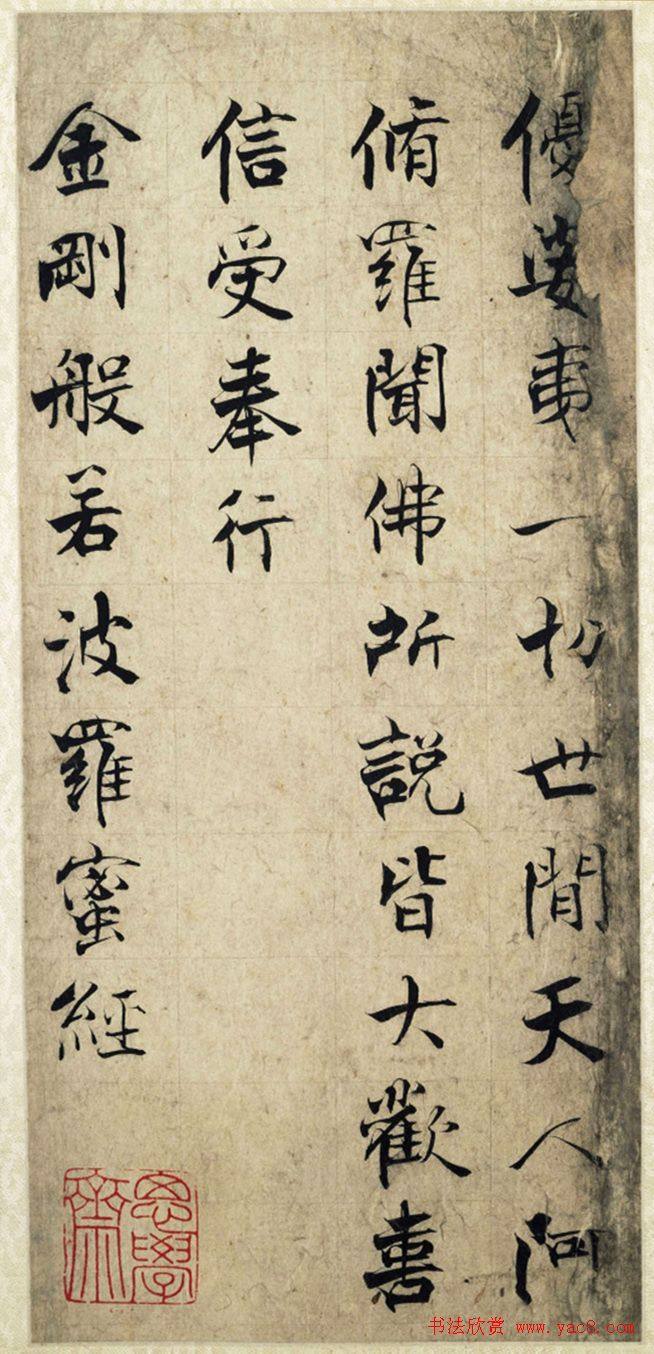 優婆夷一切世間天人阿
脩羅聞佛所說皆大歡喜
信受奉行
金剛般若波羅蜜經
思學齋
书法欣赏 www.yac8.com